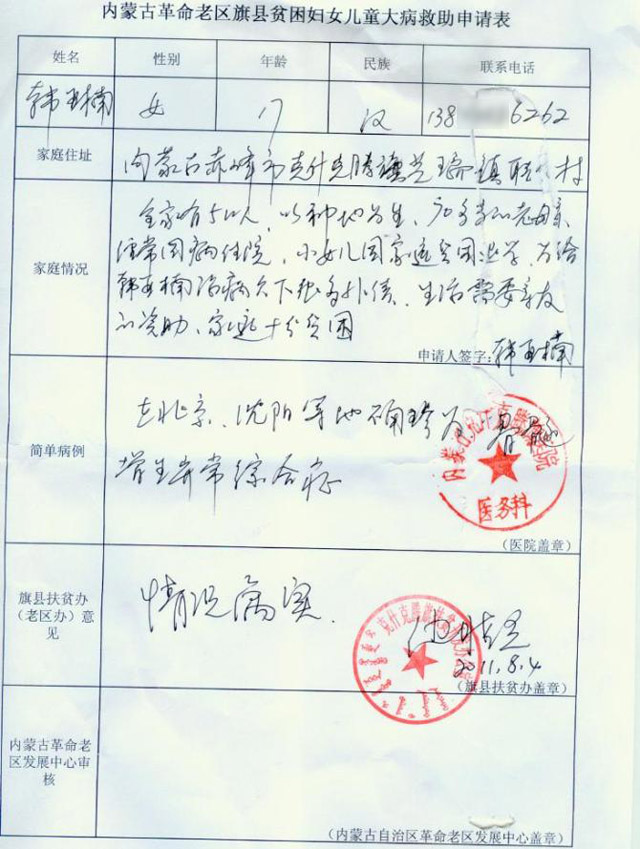 内蒙古革命老区旗县贫困妇女儿童大病救助申请表
姓名 性别 年龄 民族 联系电话
韩再楠 女 17 汉 138 6262
家庭住址 内蒙古赤峰市克什克腾旗芝瑞镇 村
家庭情况
全家有5口人，以种地为生，70多岁的老母亲
经常因病住院，小女儿因家庭贫困 学，为给
韩再楠治病欠下很多外债，生活需要亲友
的资助、家庭十分贫困
申请人签字：韩再楠
简单病例
在北京、沈阳等地确诊为骨髓
增生异常综合症
医务科
（医院盖章）
旗县扶贫办（老区办）意见
情况属实．
克什克腾旗扶贫 办公室
2011.8.4
（旗县扶贫办盖章）
内蒙古革命老区发展中心审核
（内蒙古自治区革命老区发展中心盖章）